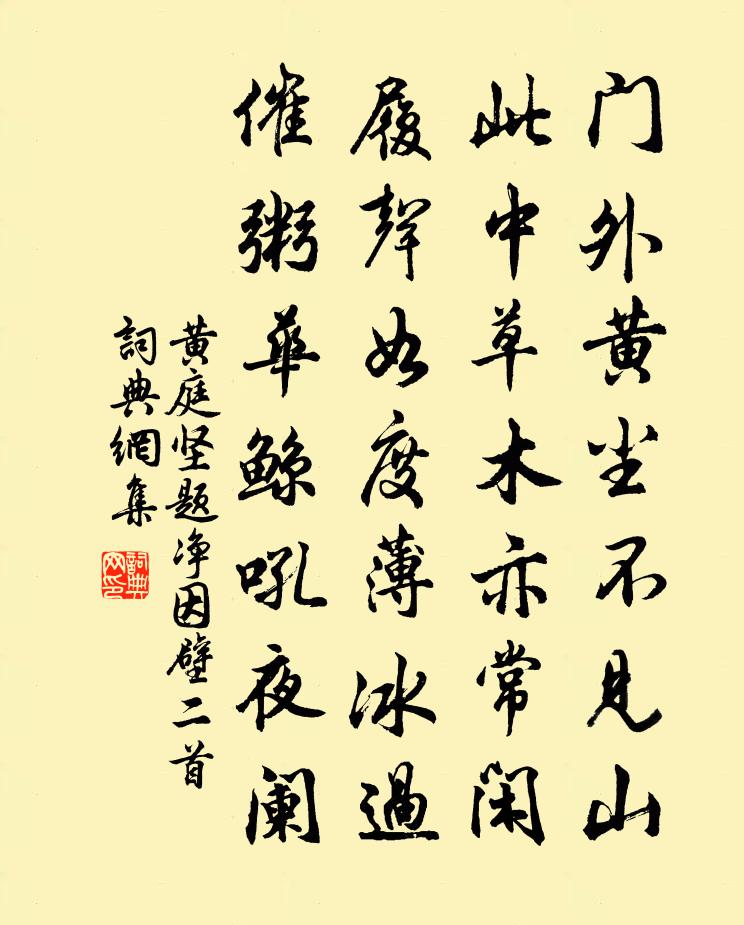 门外黄尘不见山
此中草木亦常闲
履聲如度薄冰過
催粥華鲸吼夜阑
黄庭坚题净因壁二首
詞典網集
詞典网印